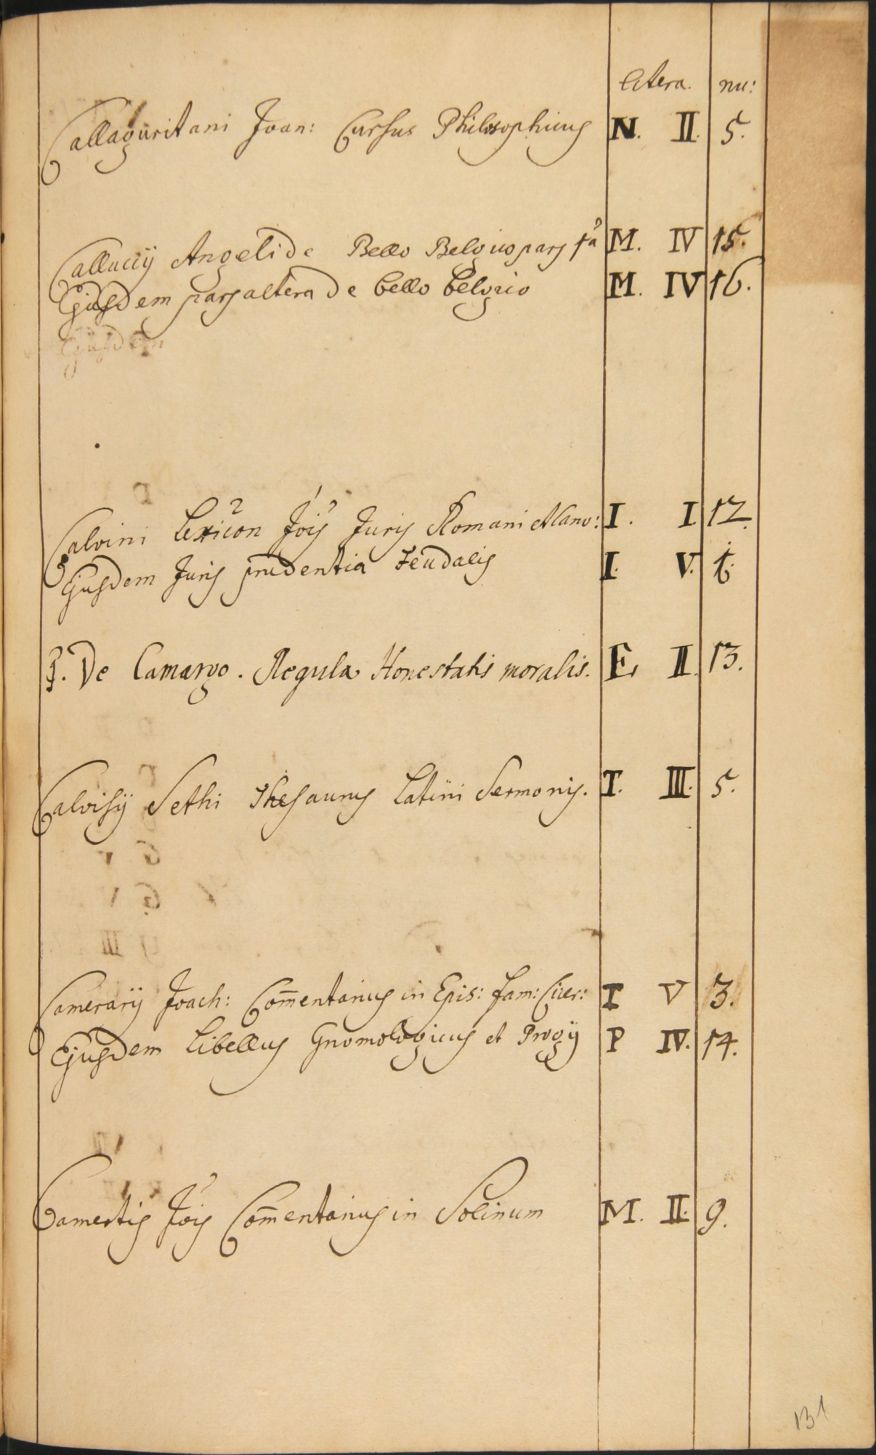 litera. nu:
Callaguritani Joan: Cursus Philosophicus N. II. 5.
Callucij Angeli de Bello Belgico pars 1a M. IV 15.
Ejusdem pars altera de bello belgico M. IV 16.
Ejusdem
Calvini Lexicon Jois Juris Romani et Cano: I. I 12.
Ejusdem Juris prudentia Feudalis I. V. 1.
J. De Camargo. Regula Honestatis moralis. E. II. 13.
Calvisij Sethi Thesaurus Latini Sermonis. T. III. 5.
Camerarij Joach: Com̄entarius in Epis: fam: Cicer: I V 3.
Ejusdem Libellus Gnomologicus et P IV. 14.
Camertis Jois Com̄entarius in Solinum M. II. 9.
131